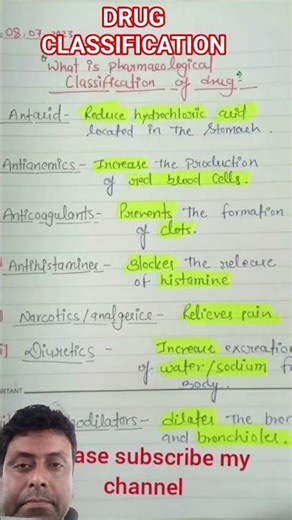 DRUG
CLASSIFICATION
08, 07, 2023
"What is pharmacological
Classification of drug"
Antacid - Reduce hydrochloric acid
located in the stomach.
Antianemics - Increase the Production
of red blood Cells.
Anticoagulants - Prevents the formation
of clots.
Antihistamines - Blockes the release
of histamine
Narcotics/analgesics - Relieves pain.
Diuretics - Increase excreation
of water/sodium
Body.
dilators - dilates the bron
and bronchioles.
ase subscribe my
channel